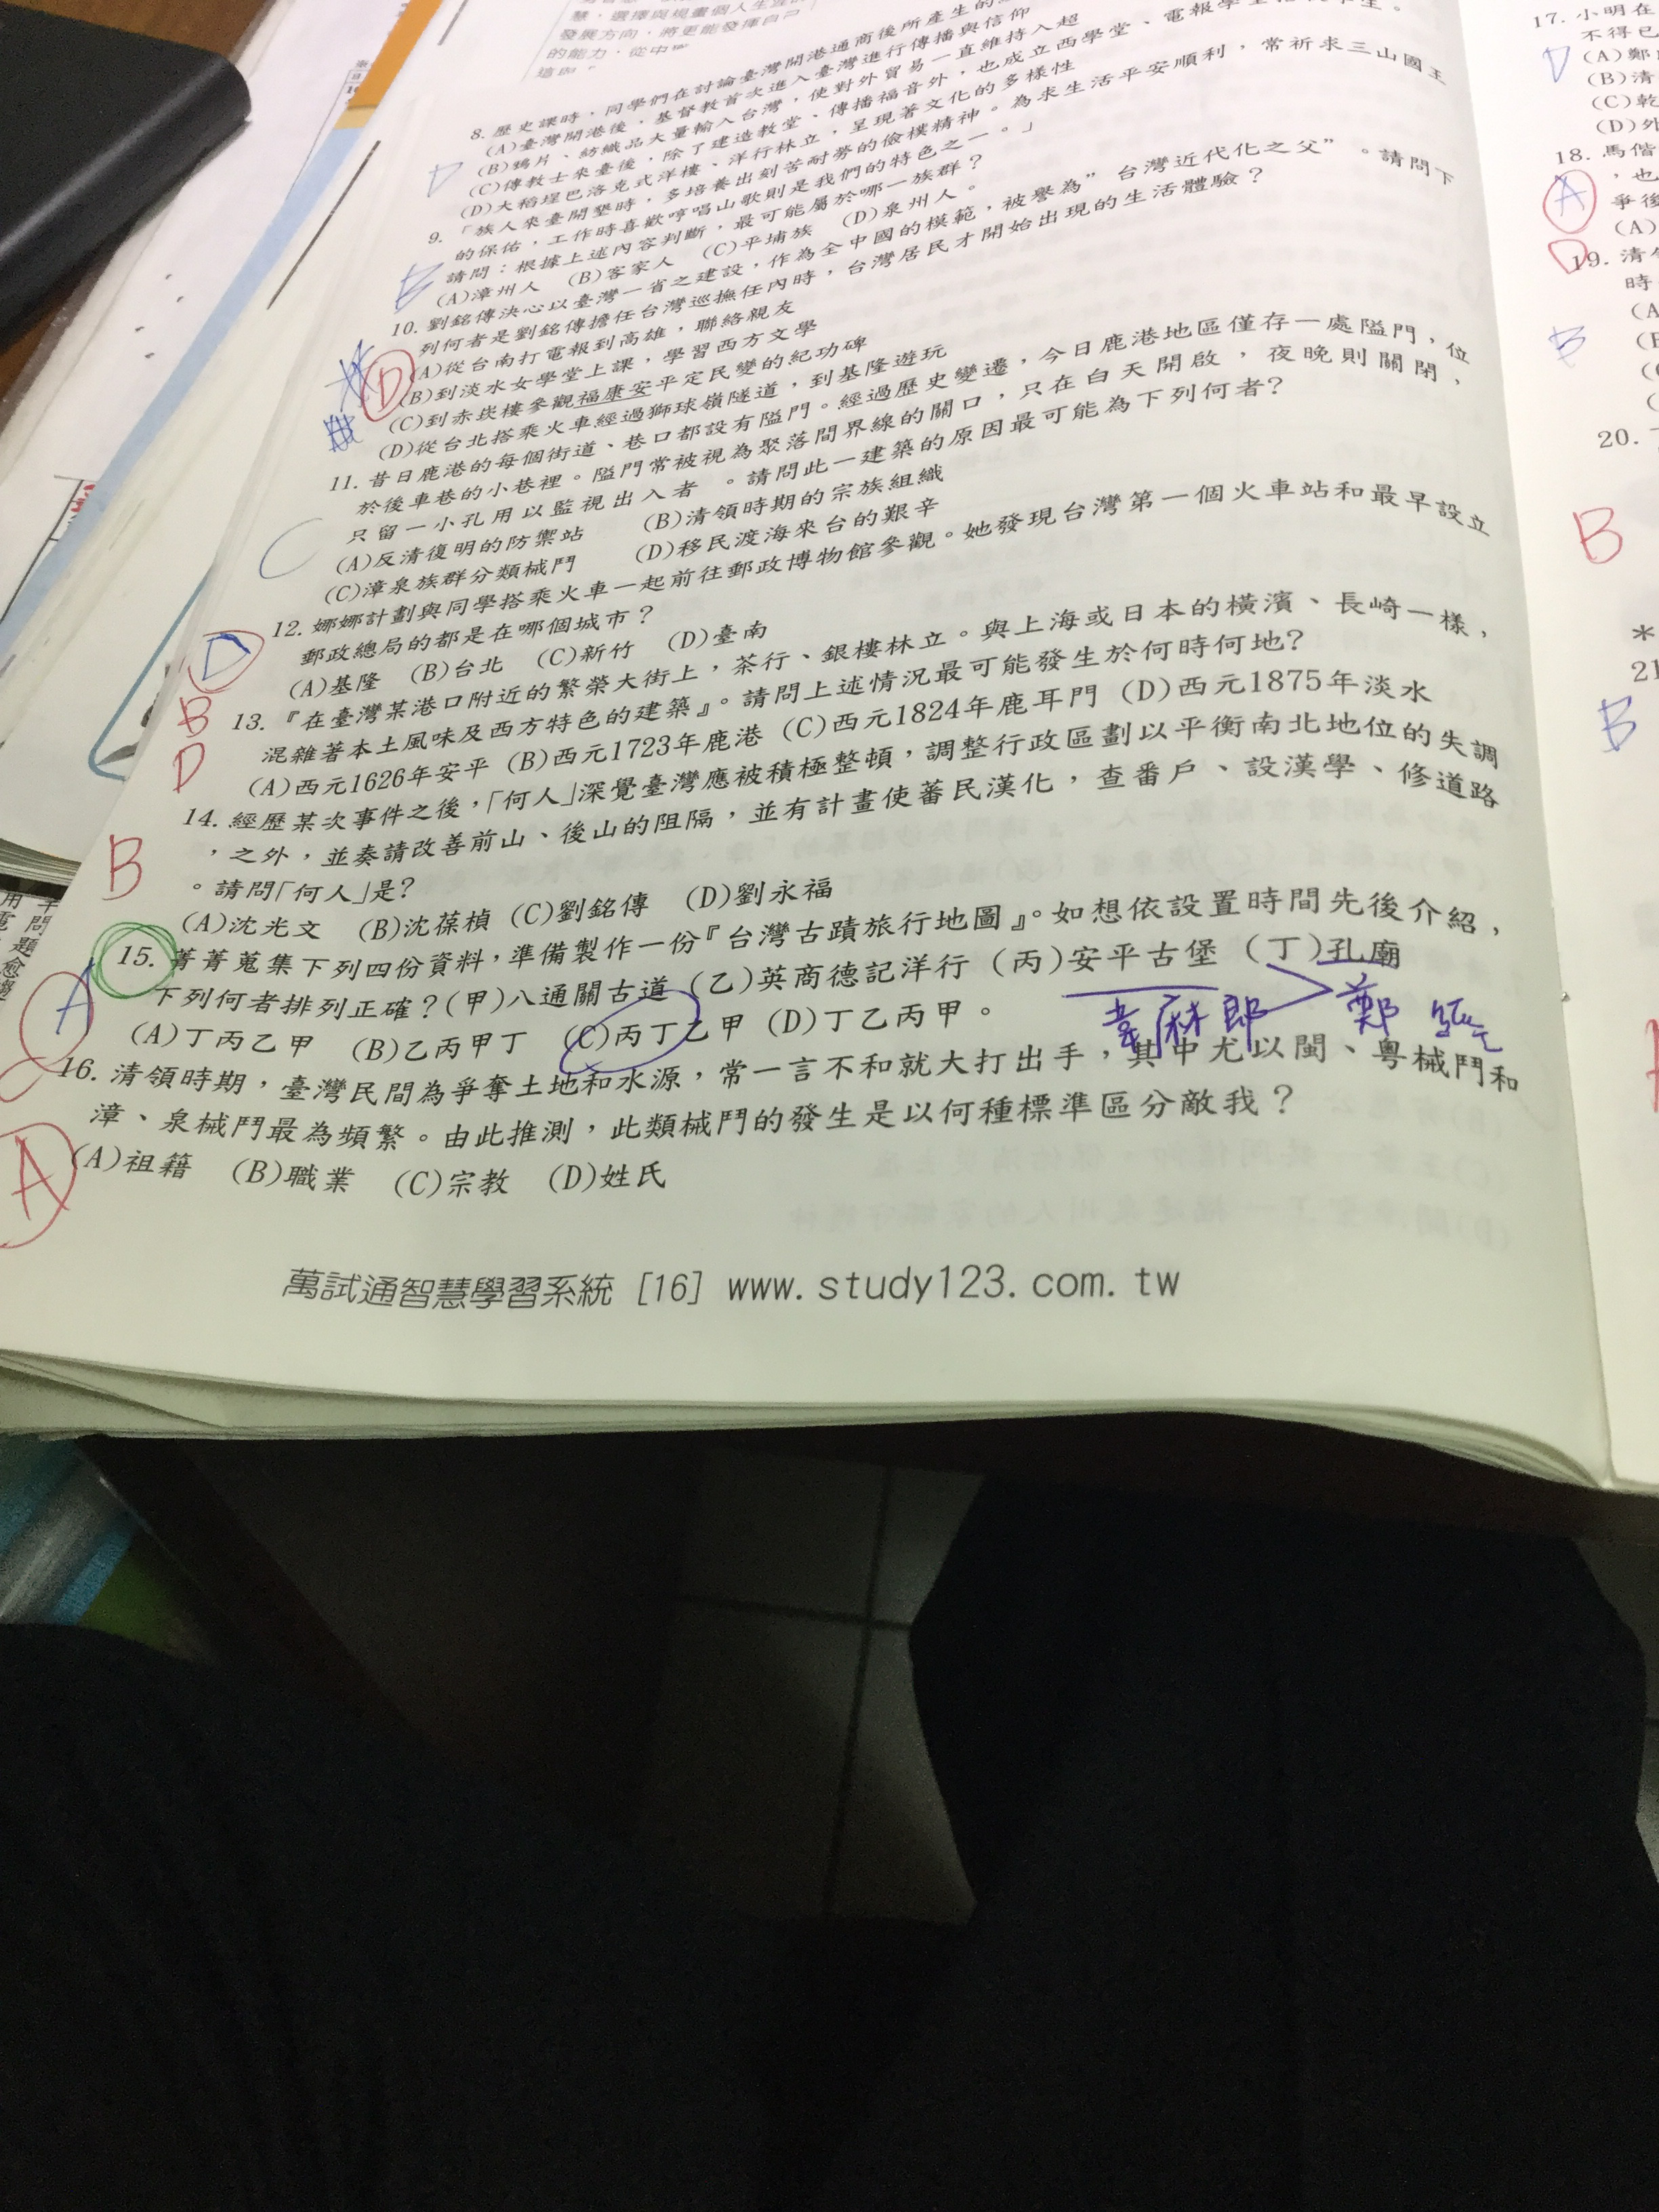 慧，選擇與規畫個人生涯
發展方向，將更能發揮自己
的能力，從中
8. 歷史課時，同學們在討論臺灣開港通商後所產生的
(A)臺灣開港後，基督教首次進入臺灣進行傳播與信仰
(B)鴉片、紡織品大量輸入台灣，使對外貿易一直維持入超
(C)傳教士來臺後，除了建造教堂、傳播福音外，也成立西學堂、電報學堂
(D)大稻埕巴洛克式洋樓、洋行林立，呈現著文化的多樣性
D
9. 「族人來臺開墾時，多培養出刻苦耐勞的儉樸精神。為求生活平安順利，常祈求三山國王
的保佑，工作時喜歡哼唱山歌則是我們的特色之一。」
請問：根據上述內容判斷，最可能屬於哪一族群？
(A)漳州人 (B)客家人 (C)平埔族 (D)泉州人。
B
10. 劉銘傳決心以臺灣一省之建設，作為全中國的模範，被譽為”台灣近代化之父”。請問下
列何者是劉銘傳擔任台灣巡撫任內時，台灣居民才開始出現的生活體驗？
(A)從台南打電報到高雄，聯絡親友
(B)到淡水女學堂上課，學習西方文學
(C)到赤崁樓參觀福康安平定民變的紀功碑
(D)從台北搭乘火車經過獅球嶺隧道，到基隆遊玩
D
11. 昔日鹿港的每個街道、巷口都設有隘門。經過歷史變遷，今日鹿港地區僅存一處隘門，位
於後車巷的小巷裡。隘門常被視為聚落間界線的關口，只在白天開啟，夜晚則關閉，
只留一小孔用以監視出入者 。請問此一建築的原因最可能為下列何者?
(A)反清復明的防禦站 (B)清領時期的宗族組織
(C)漳泉族群分類械鬥 (D)移民渡海來台的艱辛
C
12. 娜娜計劃與同學搭乘火車一起前往郵政博物館參觀。她發現台灣第一個火車站和最早設立
郵政總局的都是在哪個城市？
(A)基隆 (B)台北 (C)新竹 (D)臺南
D
B
13. 『在臺灣某港口附近的繁榮大街上，茶行、銀樓林立。與上海或日本的橫濱、長崎一樣，
混雜著本土風味及西方特色的建築』。請問上述情況最可能發生於何時何地?
(A)西元1626年安平 (B)西元1723年鹿港 (C)西元1824年鹿耳門 (D)西元1875年淡水
D
14. 經歷某次事件之後，「何人」深覺臺灣應被積極整頓，調整行政區劃以平衡南北地位的失調
，之外，並奏請改善前山、後山的阻隔，並有計畫使蕃民漢化，查番戶、設漢學、修道路
。請問「何人」是?
(A)沈光文 (B)沈葆楨 (C)劉銘傳 (D)劉永福
B
15. 菁菁蒐集下列四份資料，準備製作一份『台灣古蹟旅行地圖』。如想依設置時間先後介紹，
下列何者排列正確？(甲)八通關古道 (乙)英商德記洋行 (丙)安平古堡 (丁)孔廟
(A)丁丙乙甲 (B)乙丙甲丁 (C)丙丁乙甲 (D)丁乙丙甲。
A
韋麻郎
鄭經
16. 清領時期，臺灣民間為爭奪土地和水源，常一言不和就大打出手，其中尤以閩、粵械鬥和
漳、泉械鬥最為頻繁。由此推測，此類械鬥的發生是以何種標準區分敵我？
(A)祖籍 (B)職業 (C)宗教 (D)姓氏
A
萬試通智慧學習系統 [16] www.study123.com.tw
17. 小明在
不得已
(A)鄭
(B)清
(C)乾
(D)外
D
18. 馬偕
，也
爭後
(A)
A
19. 清
時
(A
D
B
20.
B
*
21
B